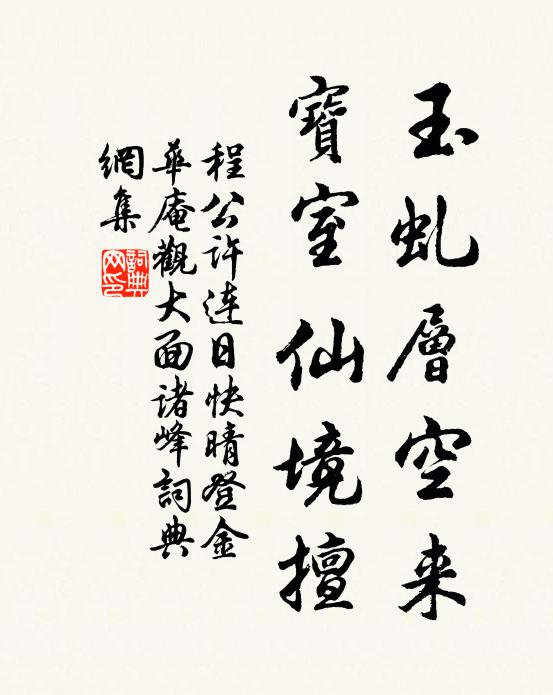 玉虬層空来
寶室仙境擅
程公许連日快晴登金
華庵觀大面诸峰詞典
網集
詞典网印